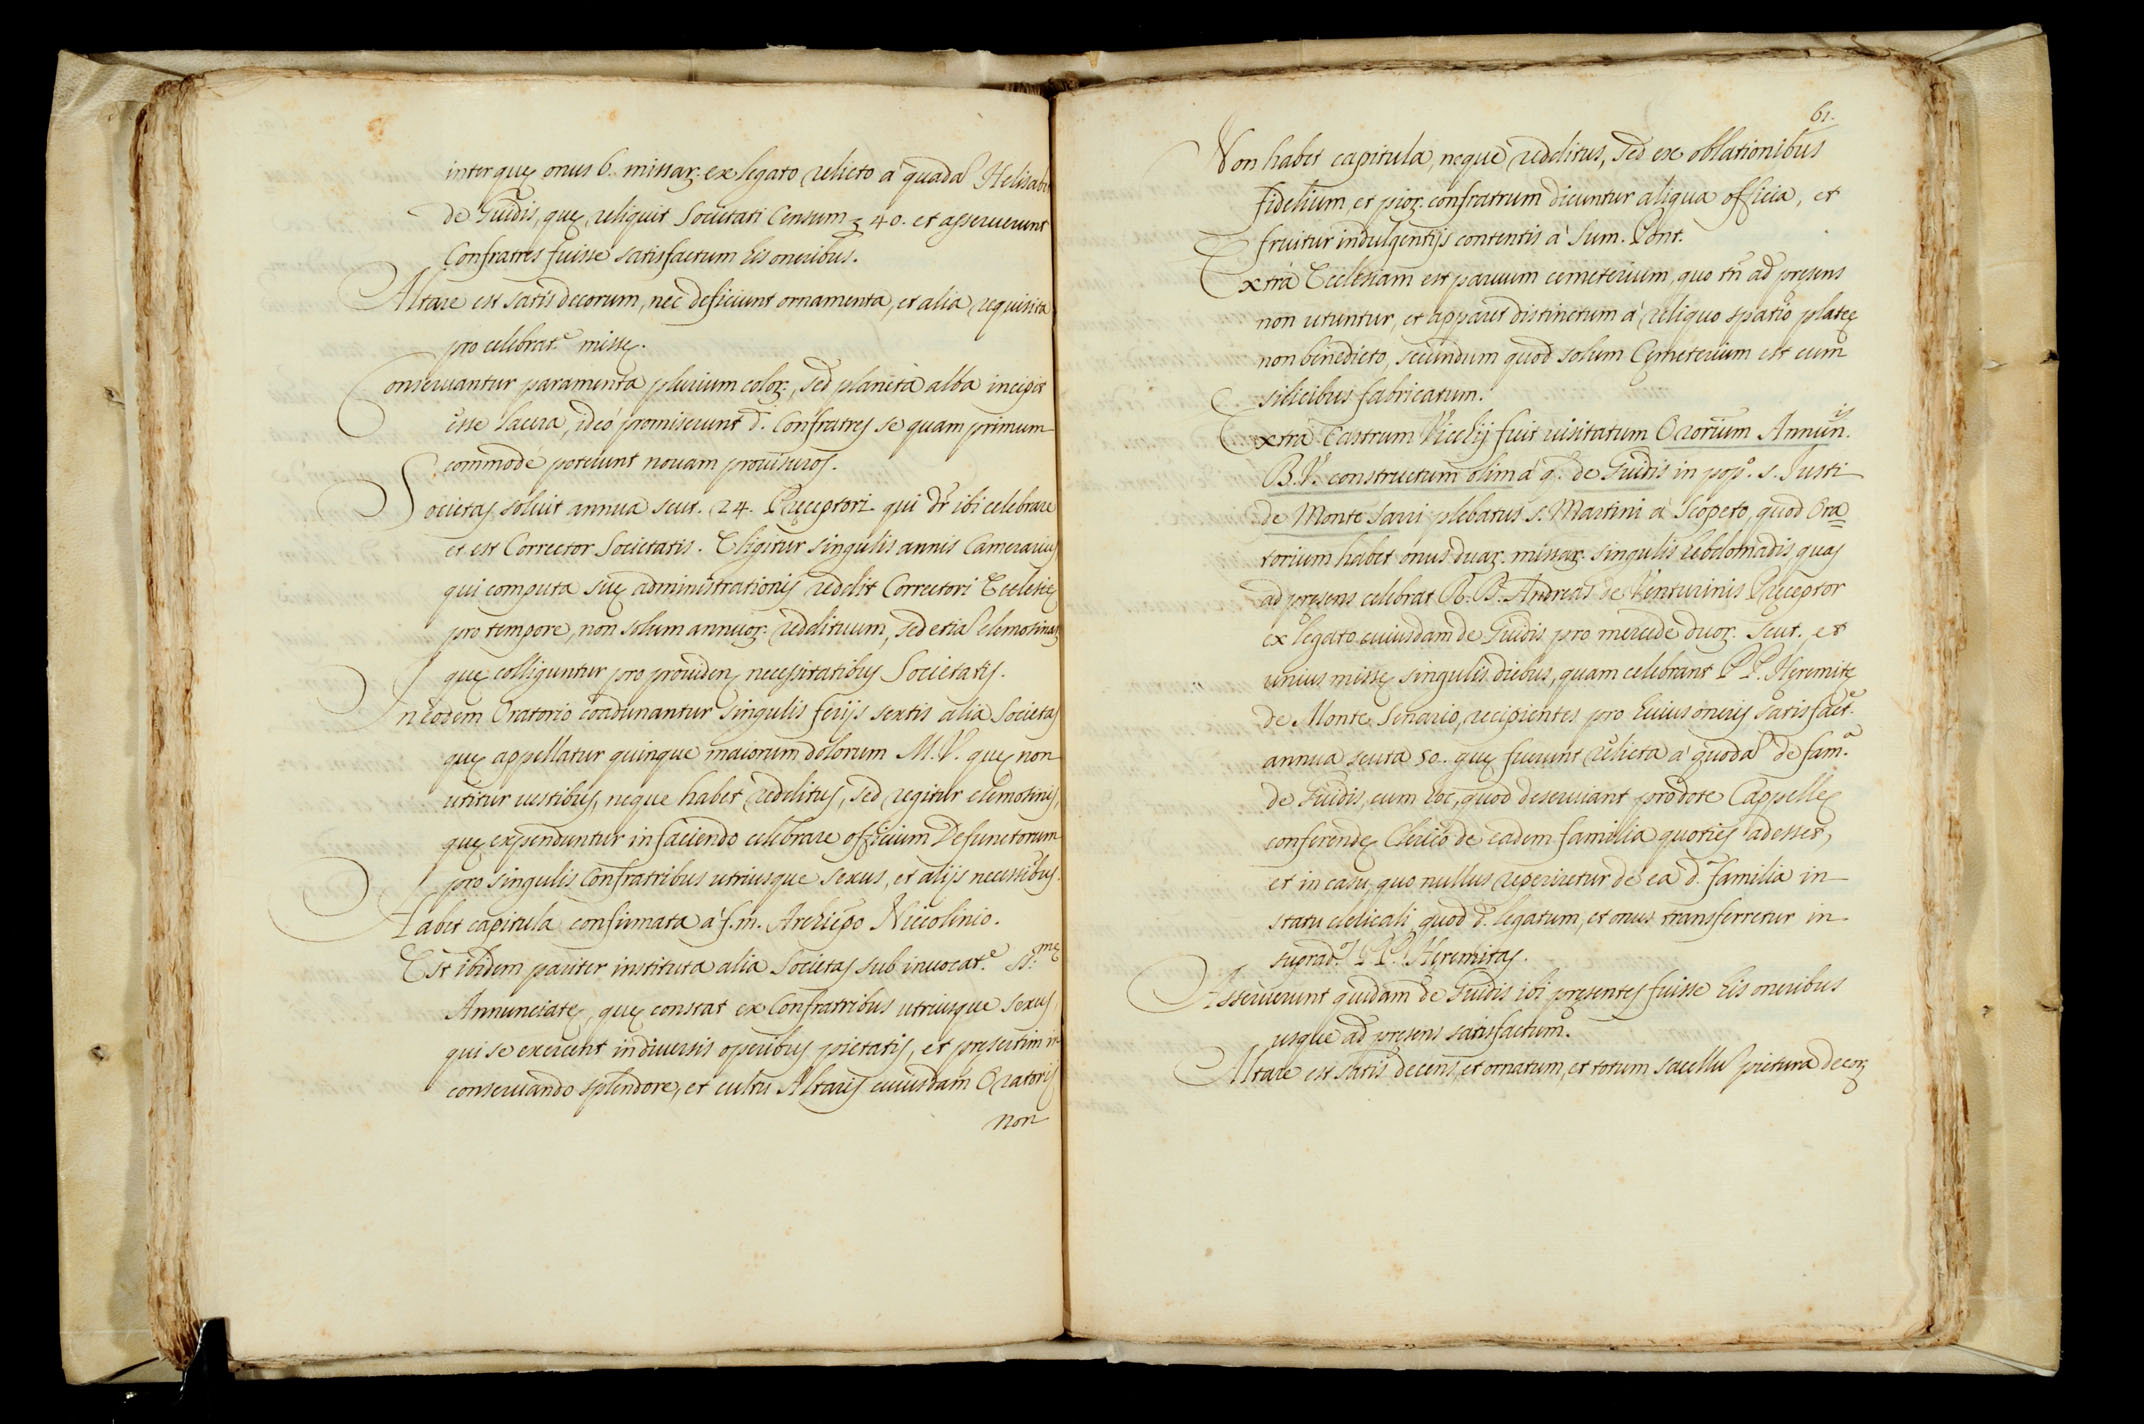 inter quę onus 6. missaꝝ. ex legato relicto à quadã Helisab
de Guidis, quę, reliquit Societati Censum 40. et asseruerunt
Confratres fuisse satisfactum his oneribus.
Altare est satis decorum, nec deficiunt ornamenta, et alia requisita
pro celebrat.e missę.
Conseruantur paramenta plurium coloꝝ., sed planeta alba incipit
esse lacera, ideò promiserunt d. Confratres se quam primum
commodè poterunt nouam prouisuros.
Societas soluit annua scut. 24. Pręceptori qui dr̃ ibi celebrare
et est Corrector Societatis. Eligitur singulis annis Camerarius
qui computa suę administrationis reddit Correctori Ecclesię
pro tempore, non solum annuoꝝ. reddituum, sed etiã elemosinaꝝ
quę colliguntur pro prouidenꝭ necessitatibus Societatis.
In eodem Oratorio coadunantur singulis ferijs sextis alia Societas
quę appellatur quinque maiorum dolorum M.V. quę non
utitur uestibus, neque habet redditus, sed regitur elemosinis,
quę expenduntur in faciendo celebrare officium Defunctorum
pro singulis Confratribus utriusque sexus, et alijs necessibus.
Habet capitula confirmata à f.m. Archiepo Niccolinio.
Est ibidem pariter instituta alia Societas sub inuocat.e SS.mę
Annunciatę, quę constat ex Confratribus utriusque sexus,
qui se exercent in diuersis operibus pietatis, et pręsertim in
conseruando splendore, et cultu Altaris cuiusdam Oratorij
non
61.
Non habet capitula, neque redditus, sed ex oblationibus
fidelium, et pioꝝ. confratrum dicuntur aliqua officia, et
fruitur indulgentijs contentis à Sum. Pont.
Extrà Ecclesiam est paruum cemeterium, quo tñ ad pręsens
non utuntur, et apparet distinctum à reliquo spatio plateę
non benedicto, secundum quod solum Cemeterium est cum
silicibus fabricatum.
Extra Castrum Vicchij fuit uisitatum Ororium Annun.is
B.V. constructum olim à q. de Guidis in pop.o S. Justi
de Monte Sassi plebatus S. Martini à Scopeto, quod Ora=
torium habet onus duaꝝ. missaꝝ. singulis hebdomadis quas
ad pręsens celebrat R. D. Andreas de Venturinis Pręceptor
ex legato cuiusdam de Guidis pro mercede duoꝝ. scut. et
unius missę singulis diebus, quam celebrant PP. Heremitę
de Monte Senario, recipientes pro huius oneris satisfact.e
annua scuta 50. quę fuerunt relicta à quodã de fam.a
de Guidis, cum hoc, quod deseruiant pro dote Cappellę
conferendę Clerico de eadem familia quoties adesset,
et in casu, quo nullus reperiretur de ea d.a familia in
statu clericali, quod d. legatum, et onus transferretur in
suprad.os PP. Heremitas.
Asseruerunt quidam de Guidis ibi pręsentes fuisse his oneribus
usque ad pręsens satisfactum.
Altare est satis decens, et ornatum, et totum sacellũ pictura decoꝝ